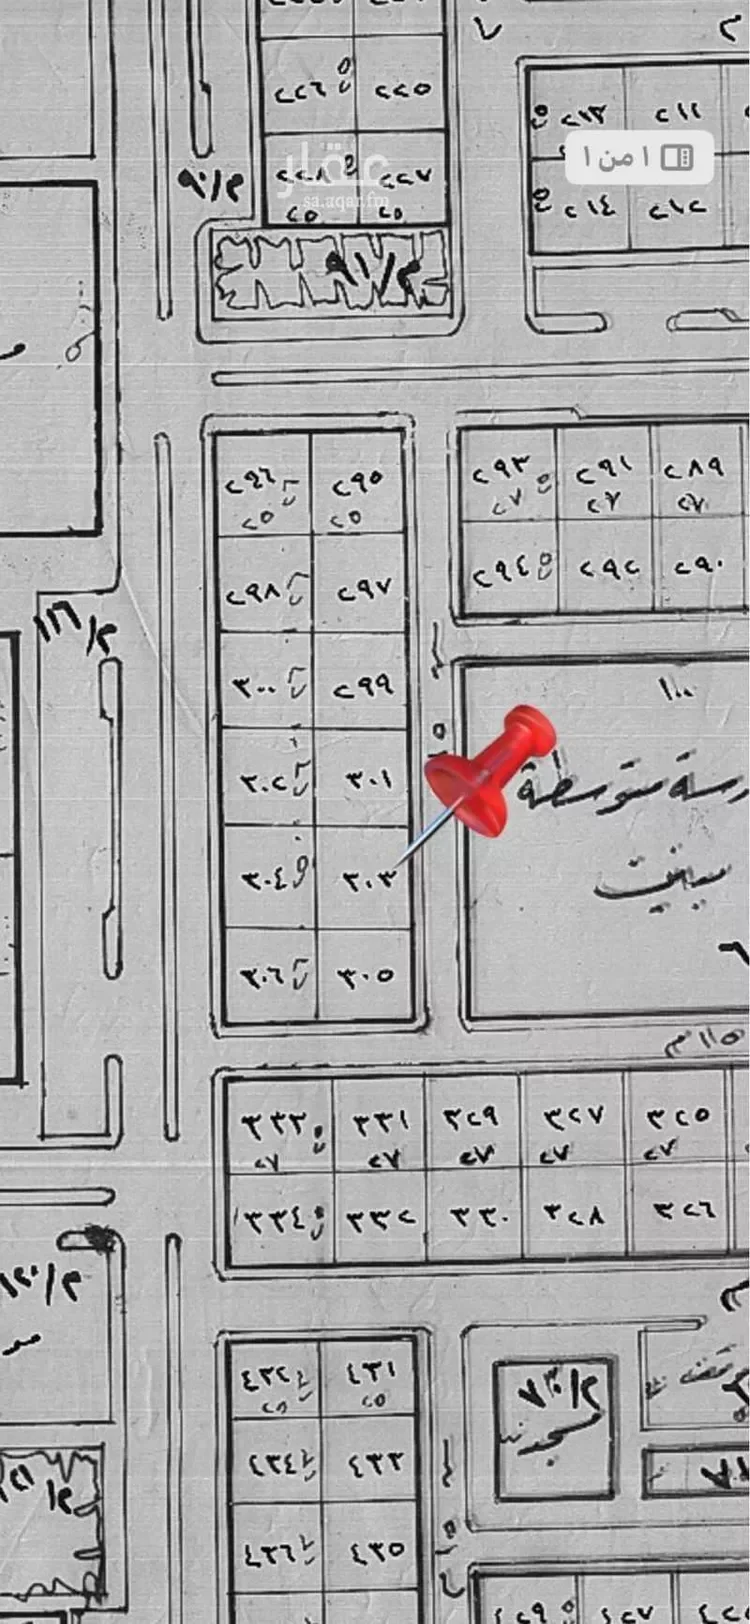 ٢٢٦ ٢٢٥
٢١٣ ٢١١
١ من ١
٢٢٨ ٢٢٧
عقار
sa.aqar.fm
٢٥ ٢٥
م/٩٠
٢١٤ ٢١٢
م/٩١
٢٩٦ ٢٩٥
٢٥ ٢٥
٢٩٣ ٢٩١ ٢٨٩
٢٧ ٢٧ ٢٧
٢٩٨ ٢٩٧
٢٩٤ ٢٩٢ ٢٩٠
م/١١٦
٣٠٠ ٢٩٩
١١٠
٣٠٢ ٣٠١
مدرسة متوسطة
٣٠٤ ٣٠٣
بنات
٣٠٦ ٣٠٥
١١٥ م
٣٣٣ ٣٣١ ٣٢٩ ٣٢٧ ٣٢٥
٢٧ ٢٧ ٢٧ ٢٧ ٢٧
٣٣٤ ٣٣٢ ٣٣٠ ٣٢٨ ٣٢٦
م/١٢٠
٤٣٢ ٤٣١
٢٥ ٢٥
م/١٣٧
مسجد
٤٣٤ ٤٣٣
م/١٢١
٤٣٦ ٤٣٥